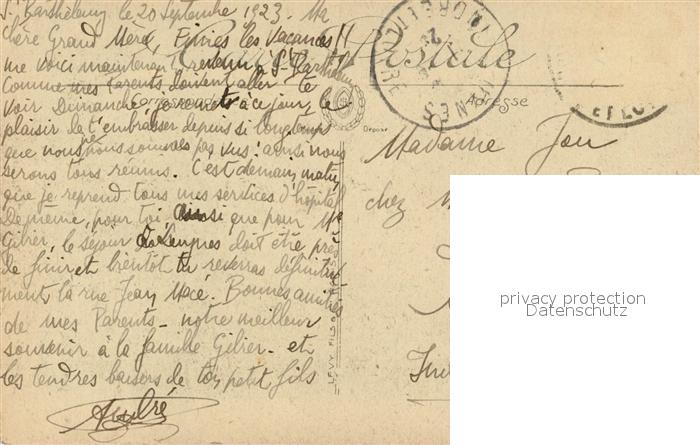 St Barthélemy le 20 Septembre 1923.
Chère Grand Mère, Finies les vacances!!
me voici maintenant revenu à St Barthélemy
Comme mes Parents doivent aller te
voir Dimanche, je remets à ce jour, le
plaisir de t'embrasser depuis si longtemps
que nous nous sommes pas vus! ainsi nous
serons tous réunis. C'est demain matin
que je reprend tous mes services d'hôpital
De même, pour toi, ainsi que pour Me
Gilier, le séjour doit être près
de finir et bientôt tu reverras définiti-
ment la rue Jean Macé. Bonnes amitiés
de mes Parents - notre meilleur
souvenir à la famille Gilier - et
les tendres baisers de ton petit fils
André
Carte Postale
Correspondance
Adresse
LEVY FILS
Madame Jou
chez
privacy protection
Datenschutz